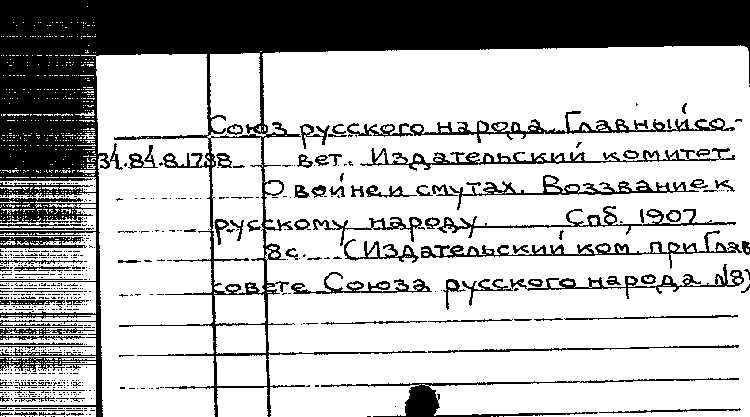 Союз русского народа. Главный со-
34.84.8.1788 вет. Издательский комитет.
О войне и смутах. Воззвание к
русскому народу. Спб., 1907.
8с. (Издательский ком. при Глав
совете Союза русского народа №8)